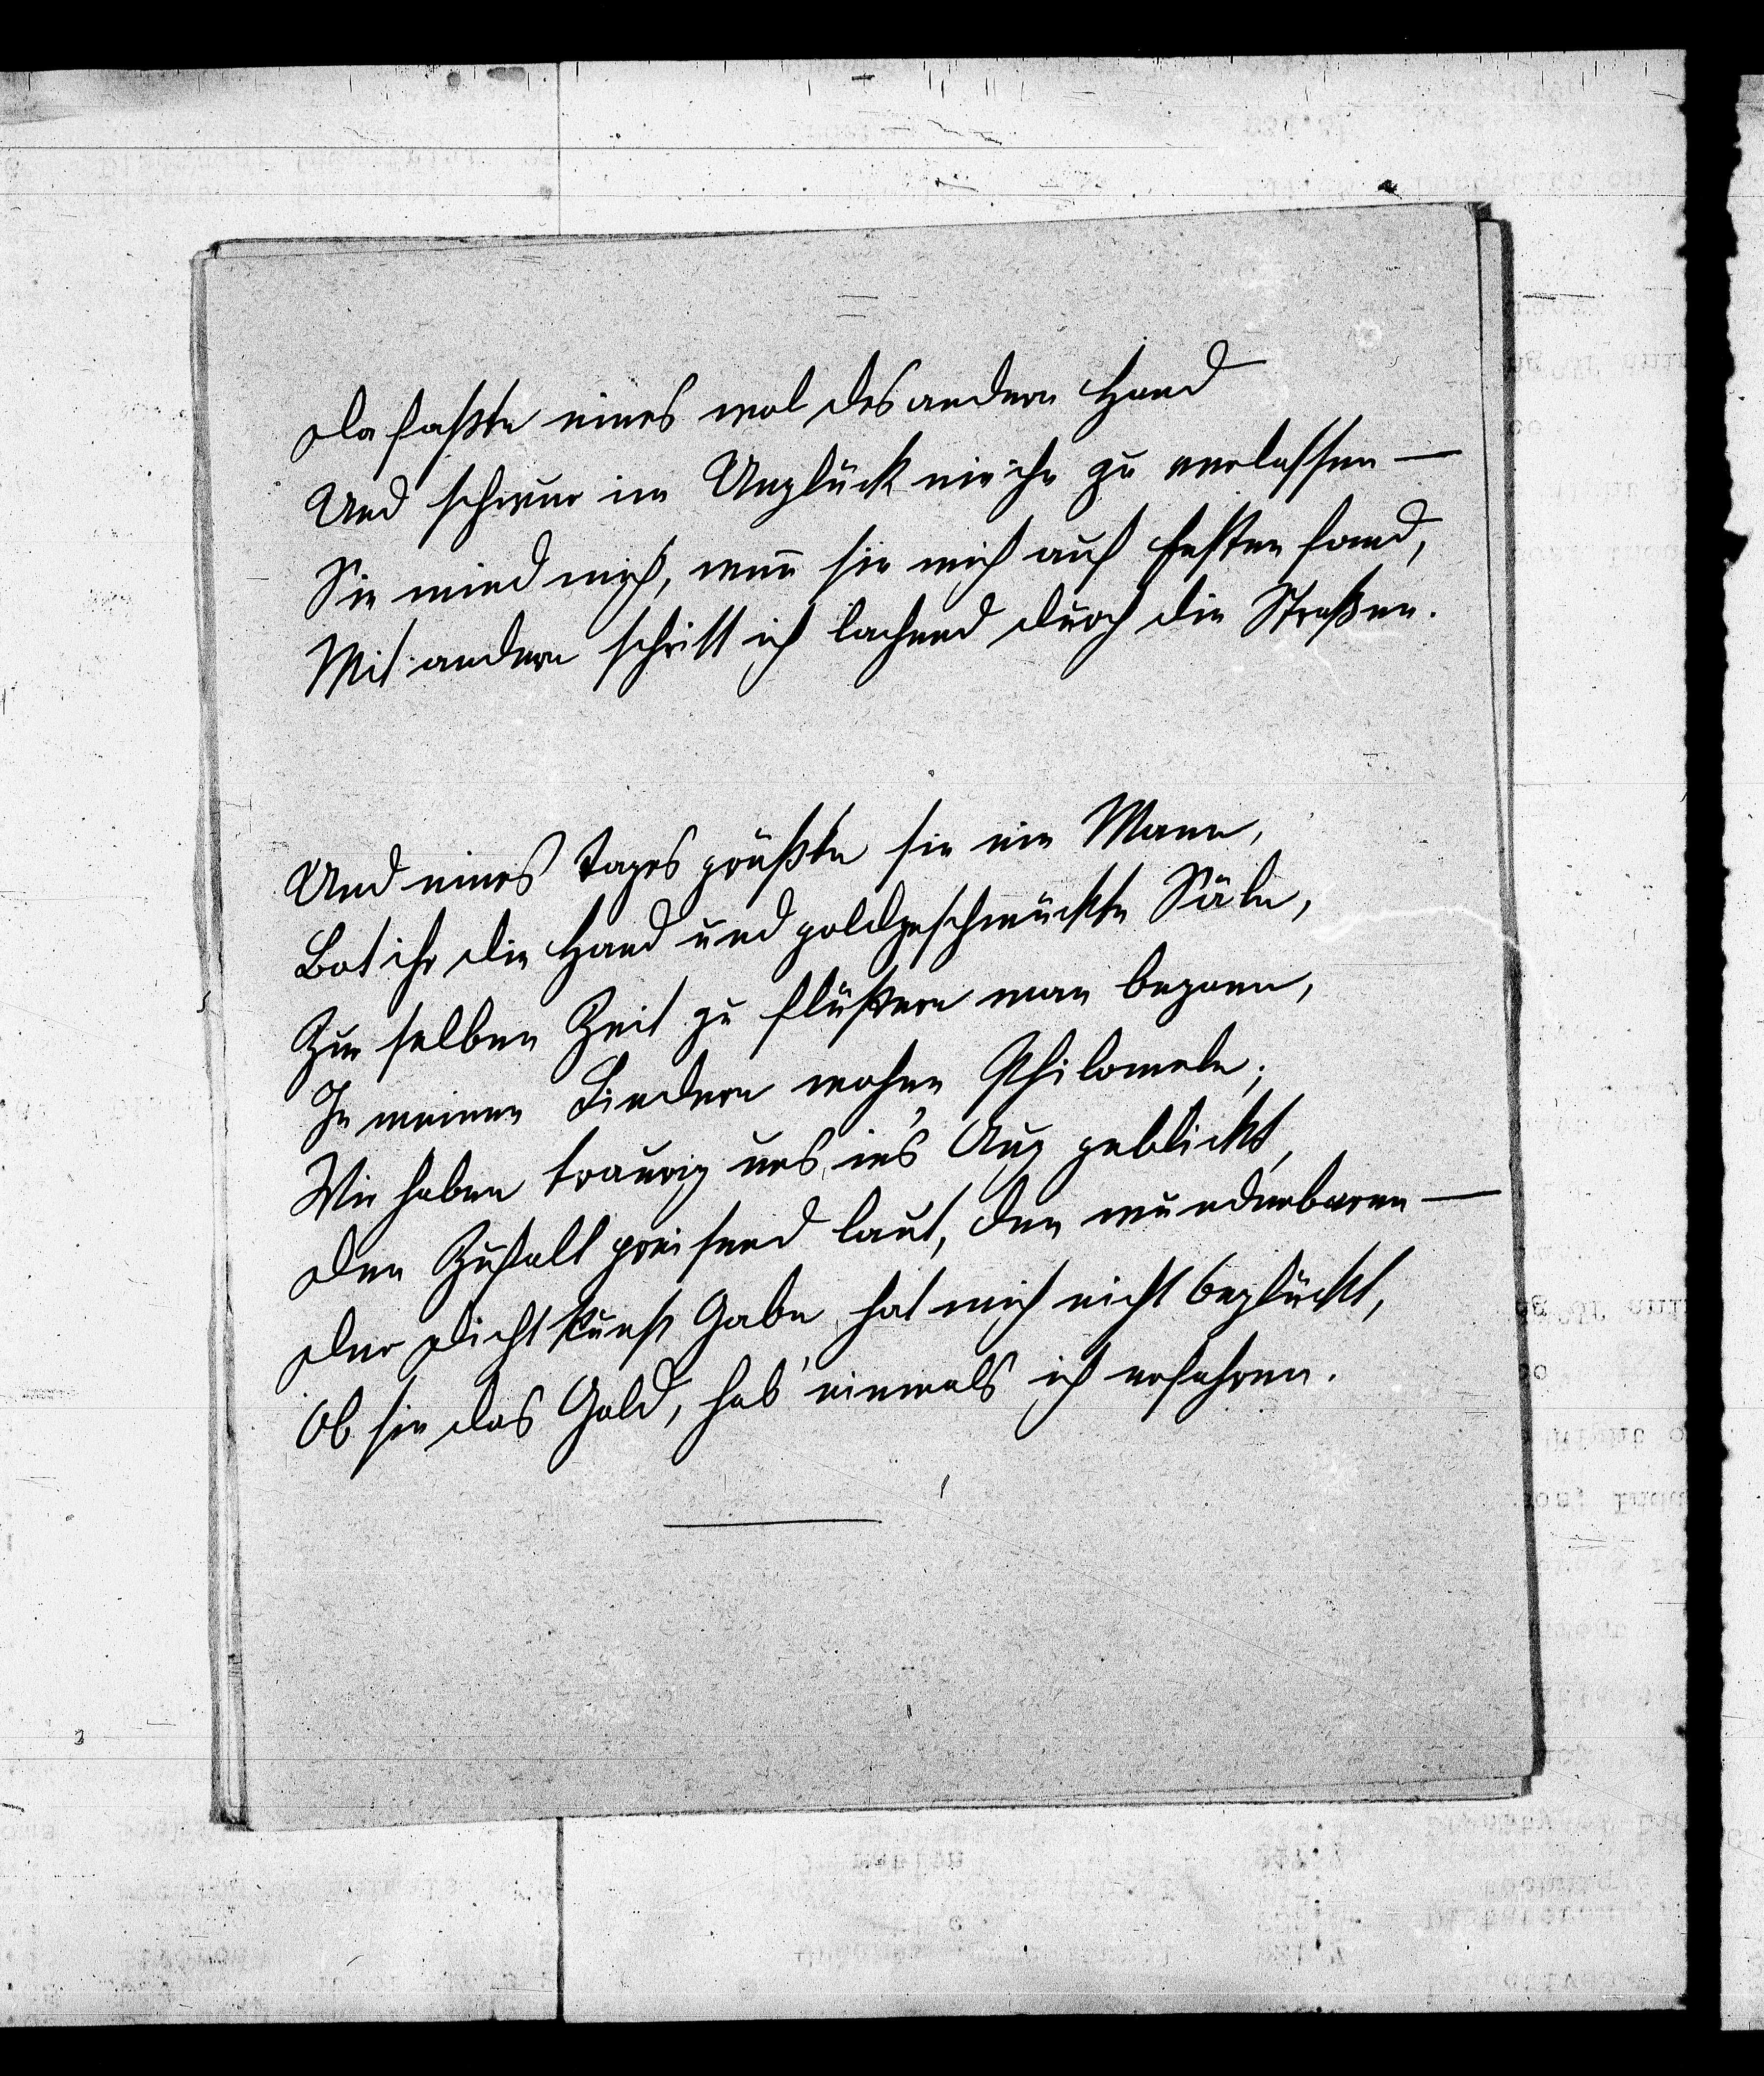 Da faßte eines wol des andern Hand
Und schwur im Unglück nie ihn zu verlassen —
Sie mied mich, wenn sie mich auf Festen fand,
Mit andern schritt ich lachend durch die Straßen.
Und eines Tages grüßte sie ein Mann,
Bot ihr die Hand und goldgeschmückte Säle,
Zur selben Zeit zu flüstern man begann,
In meinen Liedern wohne Philomele;
Wir haben traurig uns in's Aug geblickt,
Den Zufall preisend laut, den wunderbaren —
Der Dichtkunst Gabe hat mich nicht beglückt,
Ob sie das Gold, hab' niemals ich erfahren.